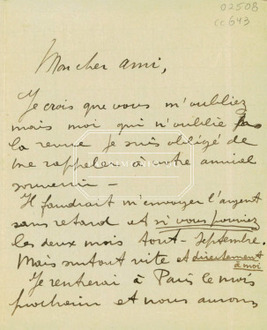 02508
cc 643
Mon cher ami,
Je crois que vous m'oubliez
mais moi qui n'oublie pas
la revue je suis obligé de
me rappeler à votre amical
souvenir —
Il faudrait m'envoyer l'argent
sans retard et si vous pouviez
les deux mois Aout-Septembre.
Mais surtout vite et directement
à moi
Je rentrerai à Paris le mois
prochain et nous aurons